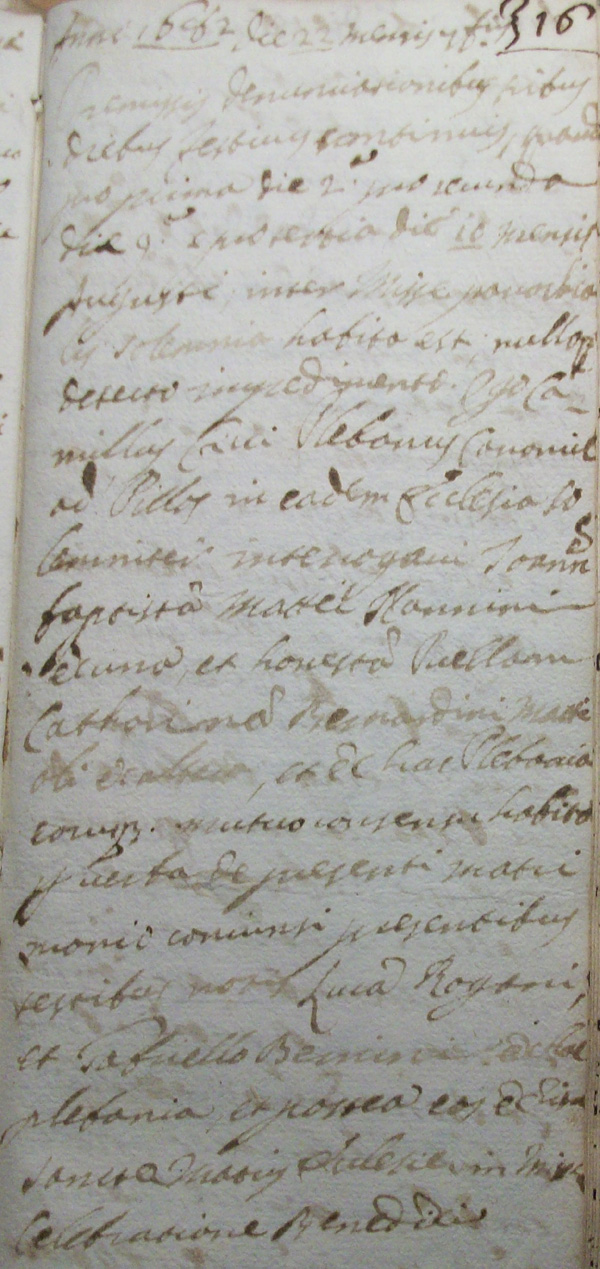 Anni 1662 die 22 mensis 316
Premissis denunciationibus tribus
diebus festivis continuis, quarũ
pro prima die 2ª pro secunda
die 9ª pro tertia die 10 mensis
Augusti, inter Misse parochia
lis solemnia habita est, nulloq
detecto impedimento. Ego Ca
millus Plebanus Canonice
ad Pillos in eadem Ecclesia so
lemniter interogavi Joanñ
baptistã Mattei Nannini
et honestã Puellam
Catharinã Bernardini Mattei
et de hac Plebania
eorumq. mutuo consensu habito
p verba de presenti matri
monio coniunxi presentibus
testibus notis Luca Rogani,
et Bernini de hac
plebania, et postea eos
sancte Matris Ecclesie in Misse
celebratione Benedixi